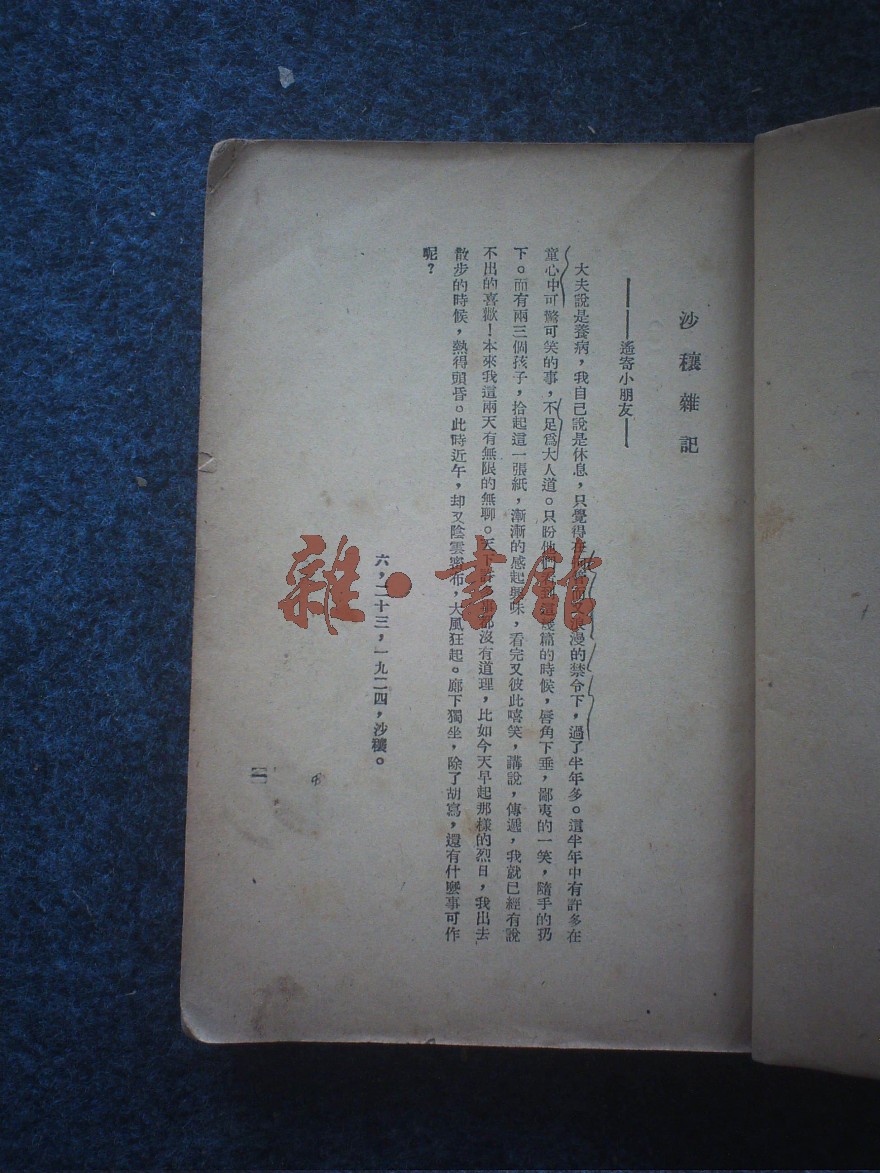 沙穰雜記
——遙寄小朋友——
大夫說是養病，我自己說是休息，只覺得在漫的禁令下，過了半年多。這半年中有許多在
童心中可驚可笑的事，不足爲大人道。只盼他們篇的時候，唇角下垂，鄙夷的一笑，隨手的扔
下。而有兩三個孩子，拾起這一張紙，漸漸的感起興味，看完又彼此嘻笑，講說，傳遞，我就已經有說
不出的喜歡！本來我這兩天有無限的無聊。天下都沒有道理，比如今天早起那樣的烈日，我出去
散步的時候，熱得頭昏。此時近午，却又陰雲密布，大風狂起。廊下獨坐，除了胡寫，還有什麼事可作
呢？
六，二十三，一九二四，沙穰。
一
雜·書館